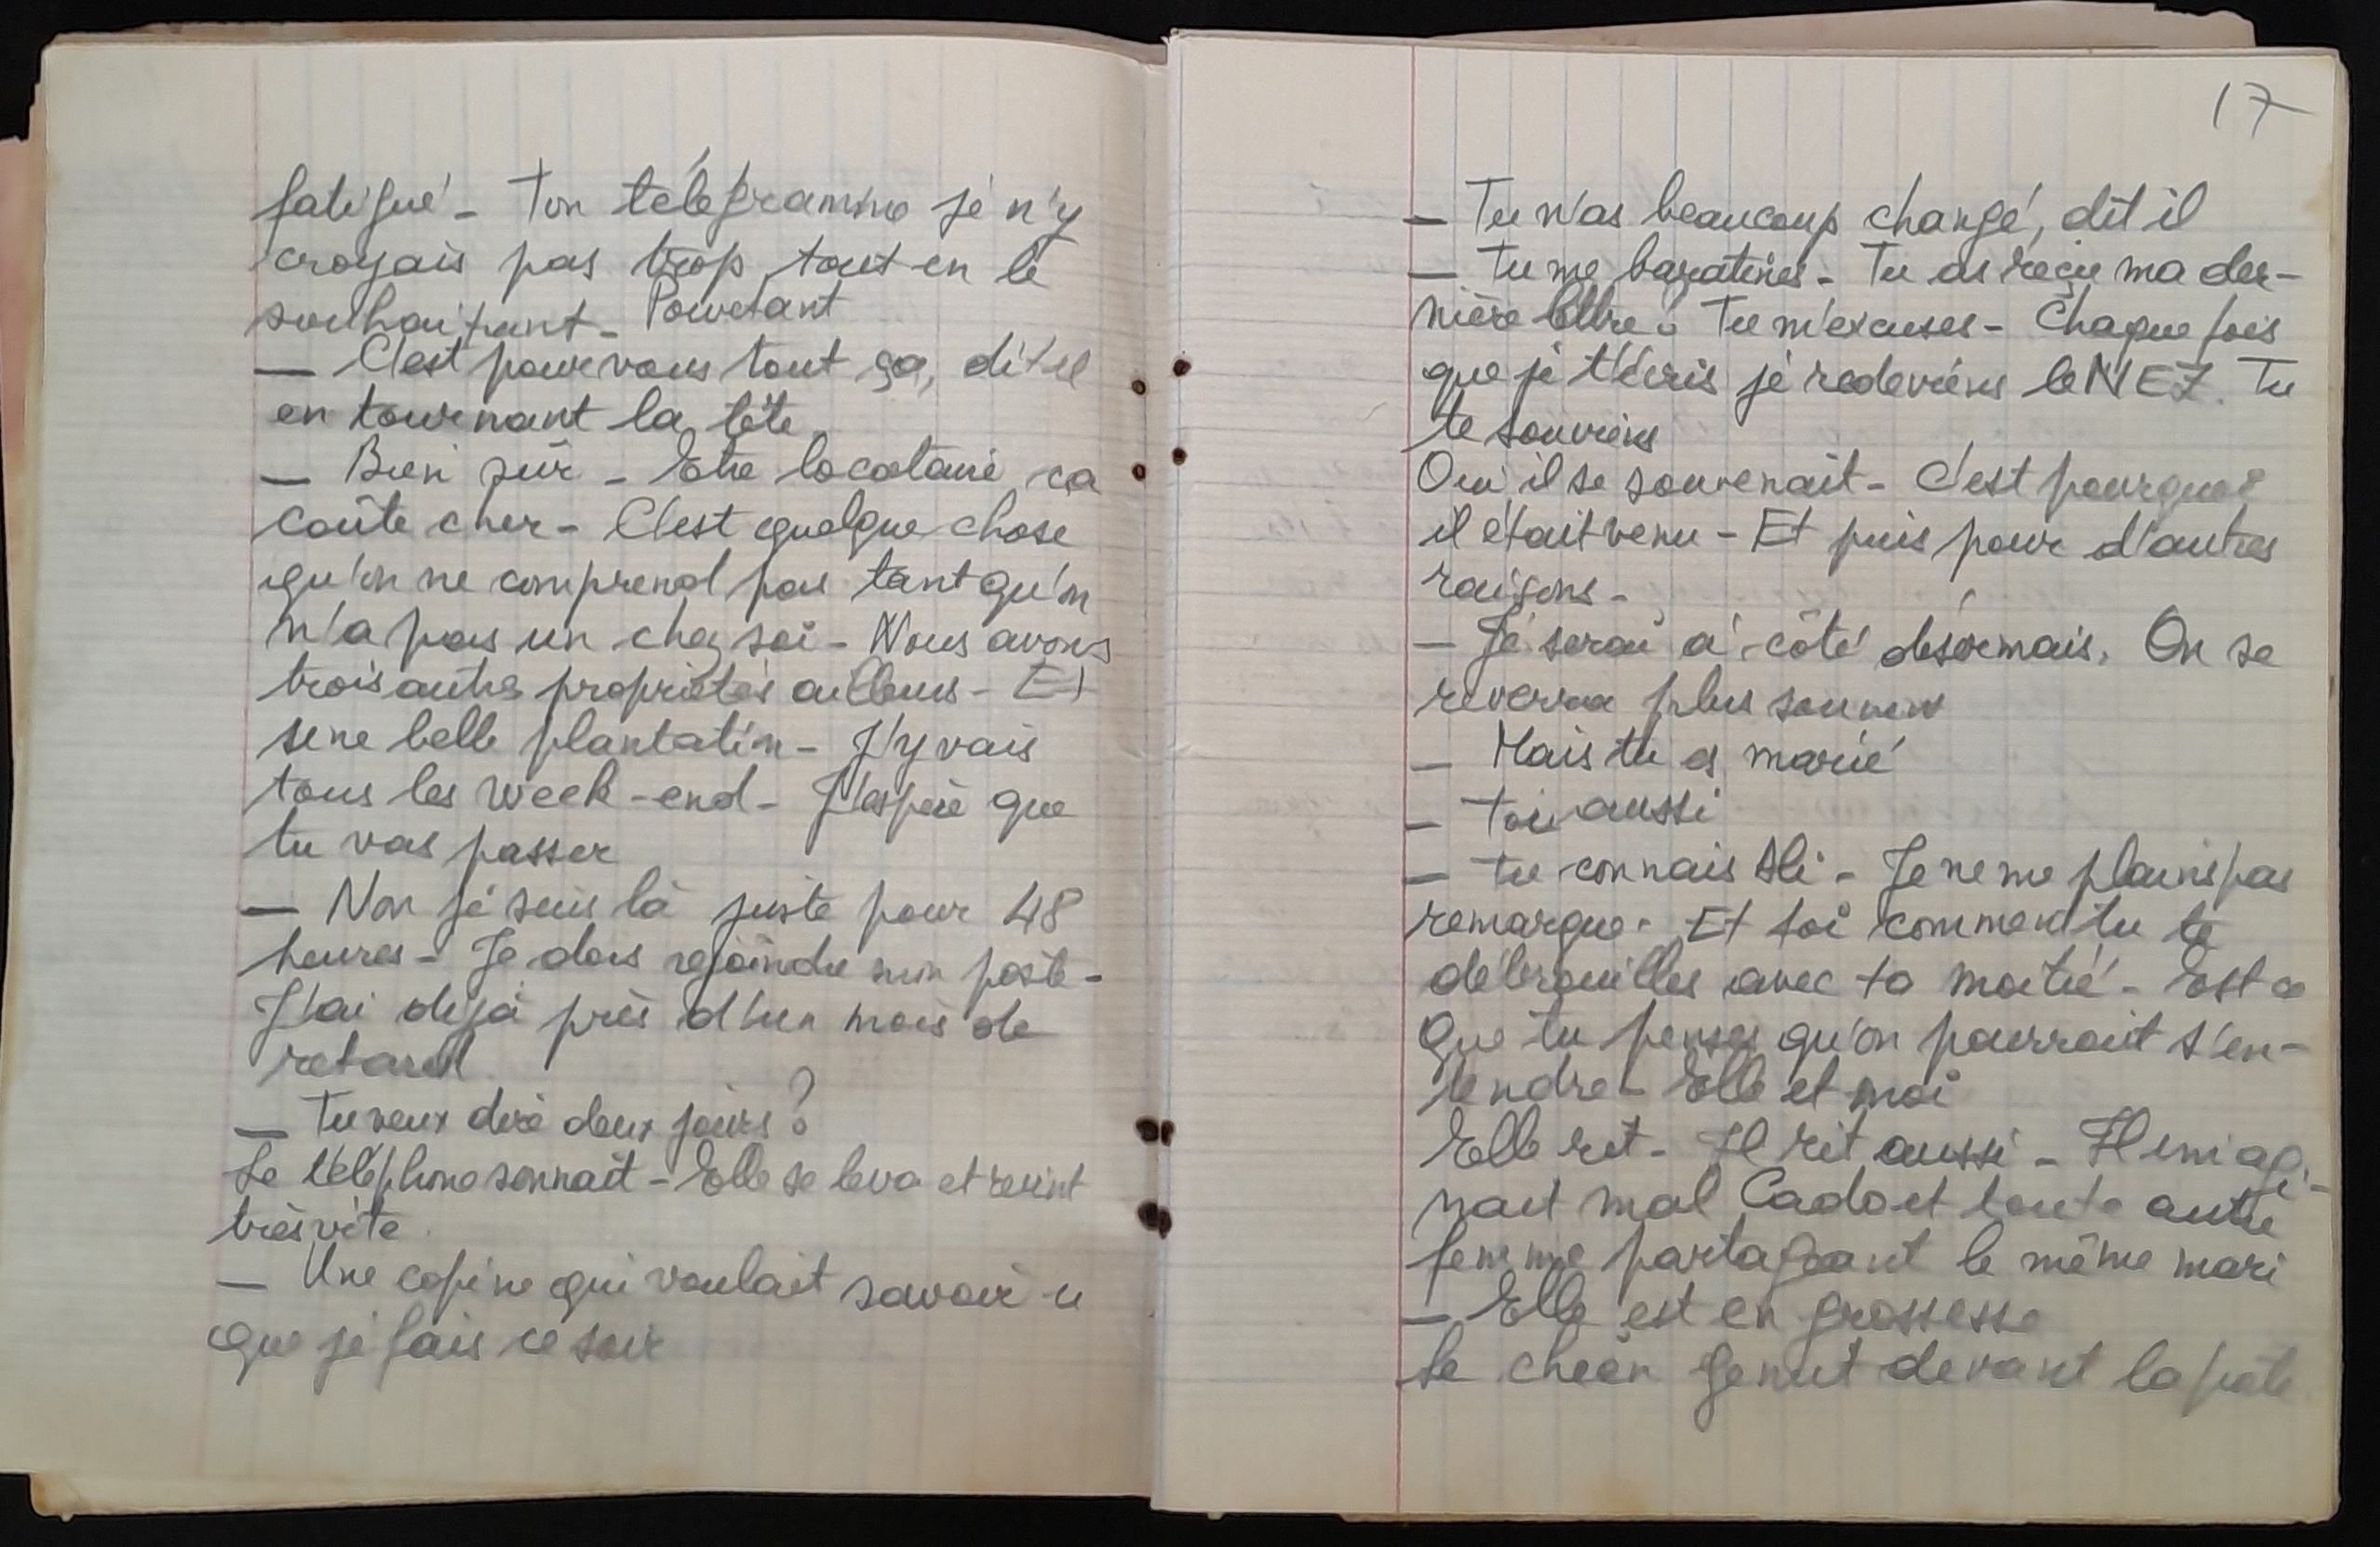 fatigué - Ton télégramme je n'y
croyais pas trop tout en le
souhaitant - Pourtant
— C'est pour vous tout ça, dit il
en tournant la tête
— Bien sûr - Etre locataire ca
coûte cher - C'est quelque chose
qu'on ne comprend pas tant qu'on
n'a pas un chez soi - Nous avons
trois autres propriétés ailleurs - Et
une belle plantation - J'y vais
tous les week-end - J'espère que
tu vas passer
— Non je suis là juste pour 48
heures - Je dois rejoindre mon poste -
J'ai déjà près d'un mois de
retard
— Tu veux dire deux jours ?
Le téléphone sonnait - Elle se leva et revint
très vite
— Une copine qui voulait savoir ce
que je fais ce soir
17
— Tu n'as beaucoup changé, dit il
— Tu me baratines - Tu as reçu ma der-
nière lettre ? Tu m'excuses - Chaque fois
que je t'écris je redeviens le NEZ. Tu
te souviens
Oui il se souvenait - C'est pourquoi
il était venu - Et puis pour d'autres
raisons -
— Je serai à côté désormais. On se
reverra plus souvent
— Mais tu es marié
— Toi aussi
— Tu connais Ali - Je ne me plains pas
remarque - Et toi comment tu te
débrouilles avec ta moitié - Est ce
que tu penses qu'on pourrait s'en-
tendre - Elle et moi
Elle rit - Il rit aussi - Il imagi-
nait mal Cado et toute autre
femme partageant le même mari
— Elle est en grossesse
Le chien gémit devant la porte